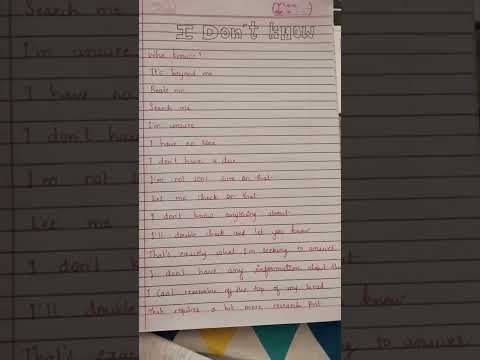 I Don't know
Who knows?
It's beyond me
Beats me
Search me
I'm unsure
I have no idea
I don't have a clue
I'm not 100% sure on that
Let me check on that
I don't know anything about
I'll double check and let you know
That's exactly what I'm seeking to answer
I don't have any information about the
I can't remember off the top of my head
That requires a bit more research first